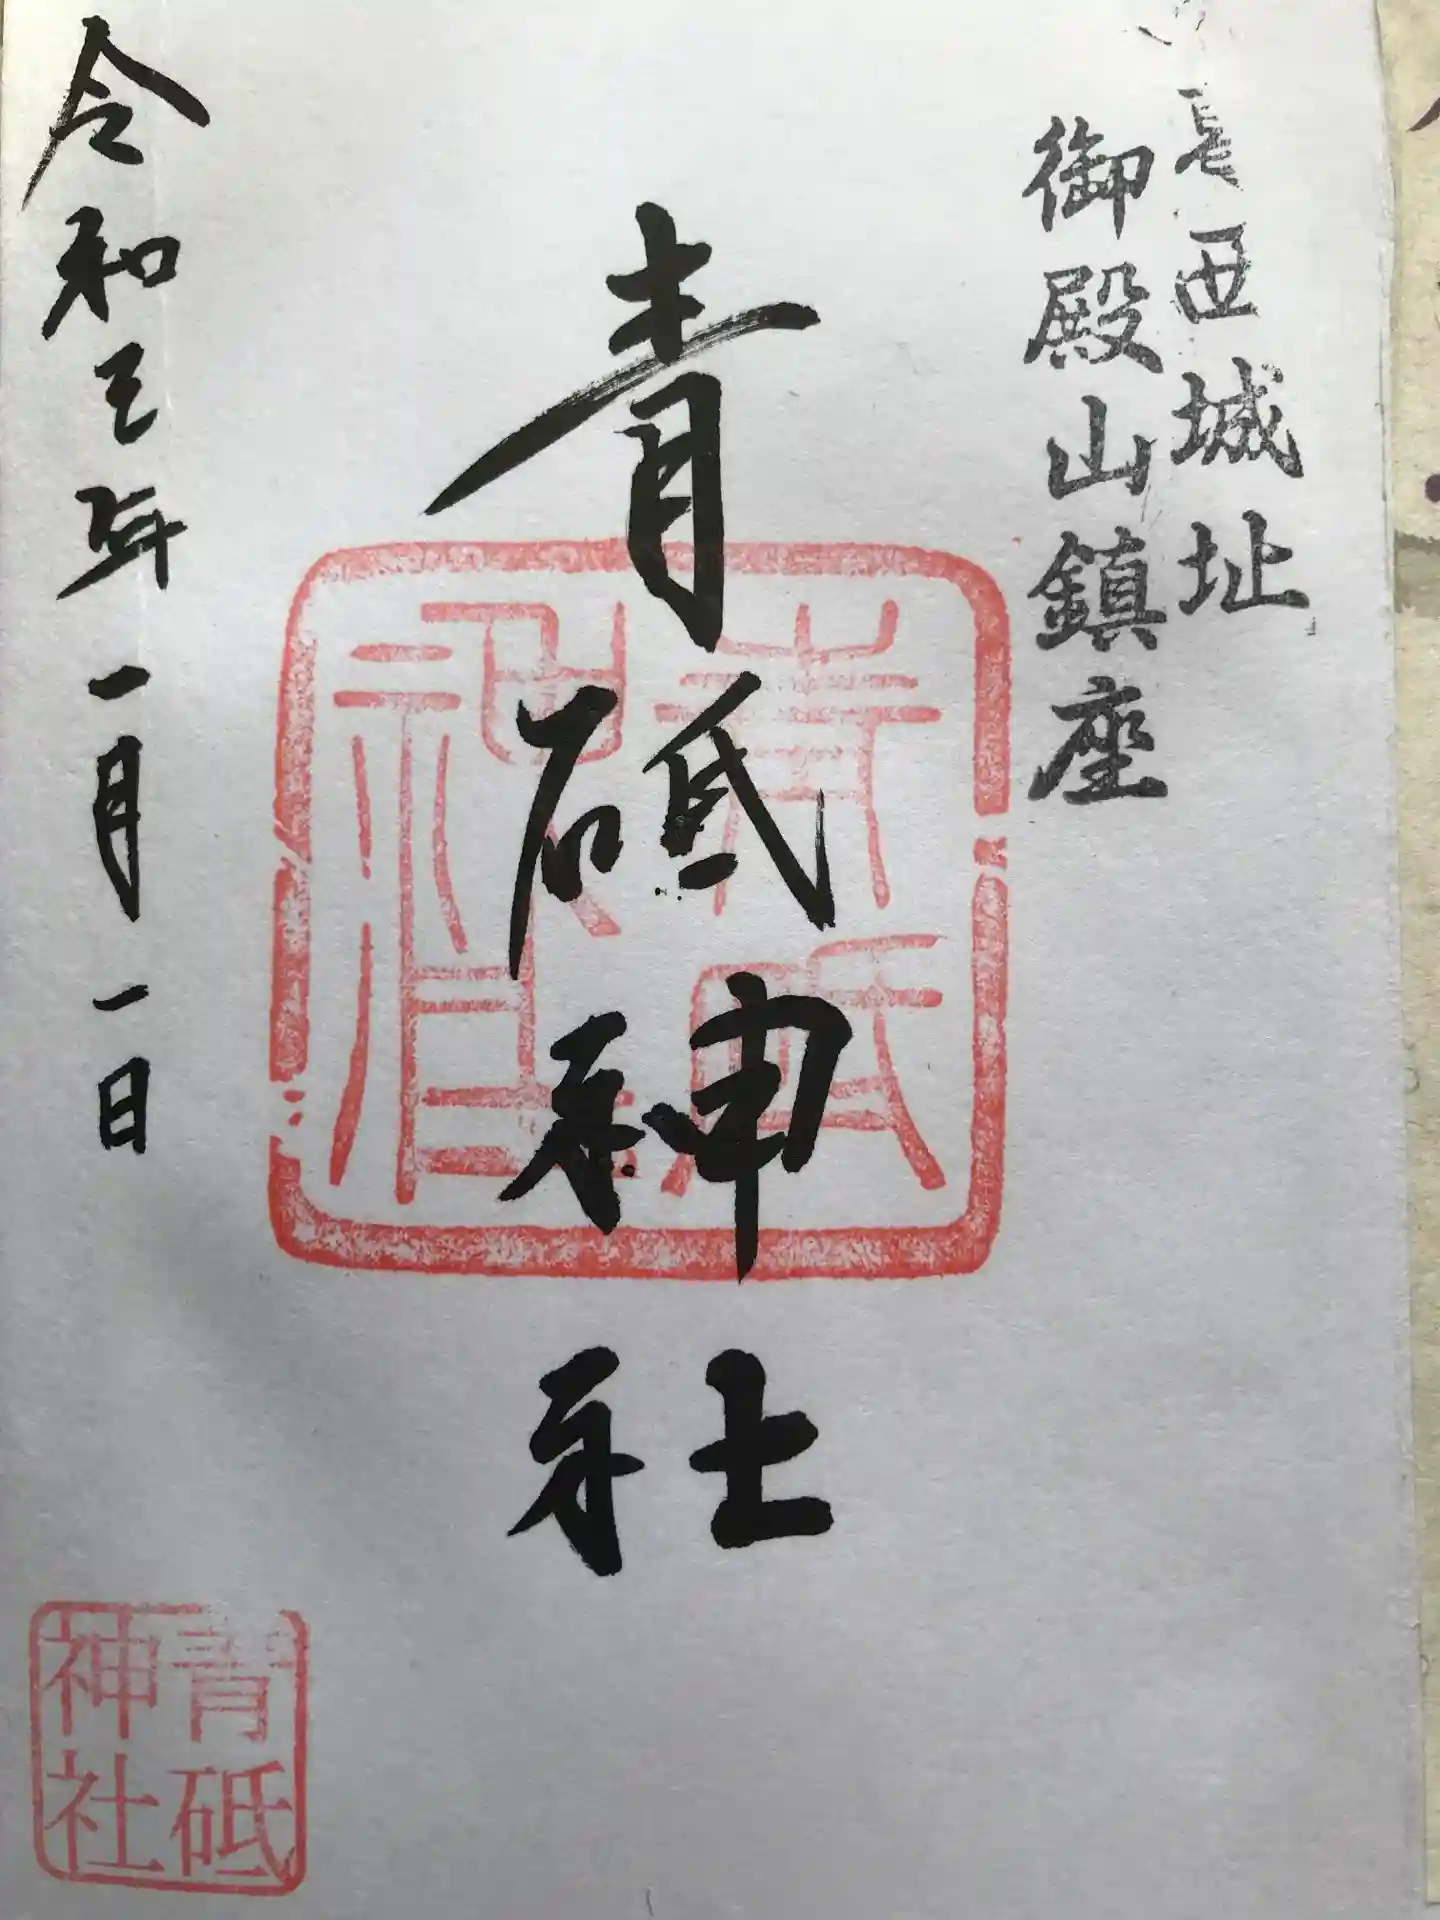 葛西城址
御殿山鎮座
青砥神社
令和三年一月一日
青砥
神社